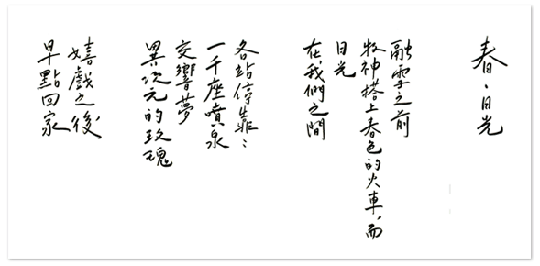 春、日光
融雪之前
牧神搭上春色的火車,而
日光
在我們之間
各站停靠:
一千座噴泉
交響夢
異次元的玫瑰
嬉戲之後
早點回家